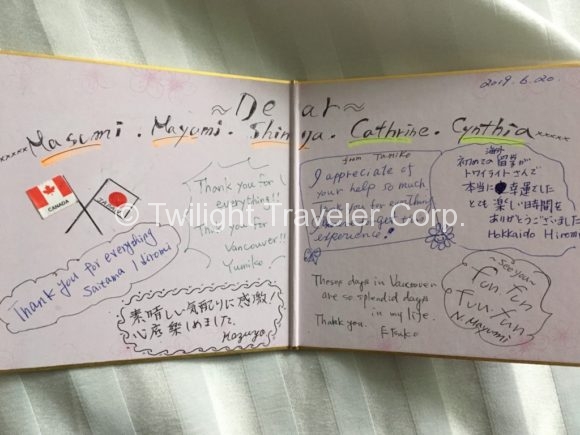 2019.6.20.
~Dear~
Masumi. Mayumi. Shinya. Cathrine. Cynthia
CANADA
JAPAN
Thank you for everything
Saitama / Hiromi
Thank you for
everything!!
Thank you for
Vancouver!!
Yumiko
素晴しい気配りに感激!
心底楽しめました。
Kazuyo
from Tamiko
I appreciate of
your help so much
experience!
These days in Vancouver
are so splendid days
in my life.
Thank you.
Etsuko
海外
初めての留学が
トワイライトさんで
本当に幸運でした
とても楽しい時間を
ありがとうございました
Hokkaido Hiromi
~See you~
fun fun
fun.fun
N. Mayumi
© Twilight Traveler Corp.